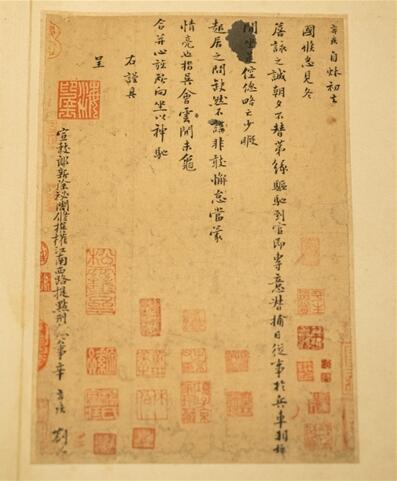 棄疾自秋初去
國倏忽見冬
詹詠之誠朝夕不替第緣驅馳到官即專意督捕日從事於兵車羽檄
間坐是倥傯略亡少暇
起居之問缺然不講非敢懈怠當蒙
情亮也指吳會雲間未龜
合并心旌所向坐以神馳
右謹具
呈
宣教郎新除秘閣修撰權江南西路提點刑獄公事辛棄疾劄子